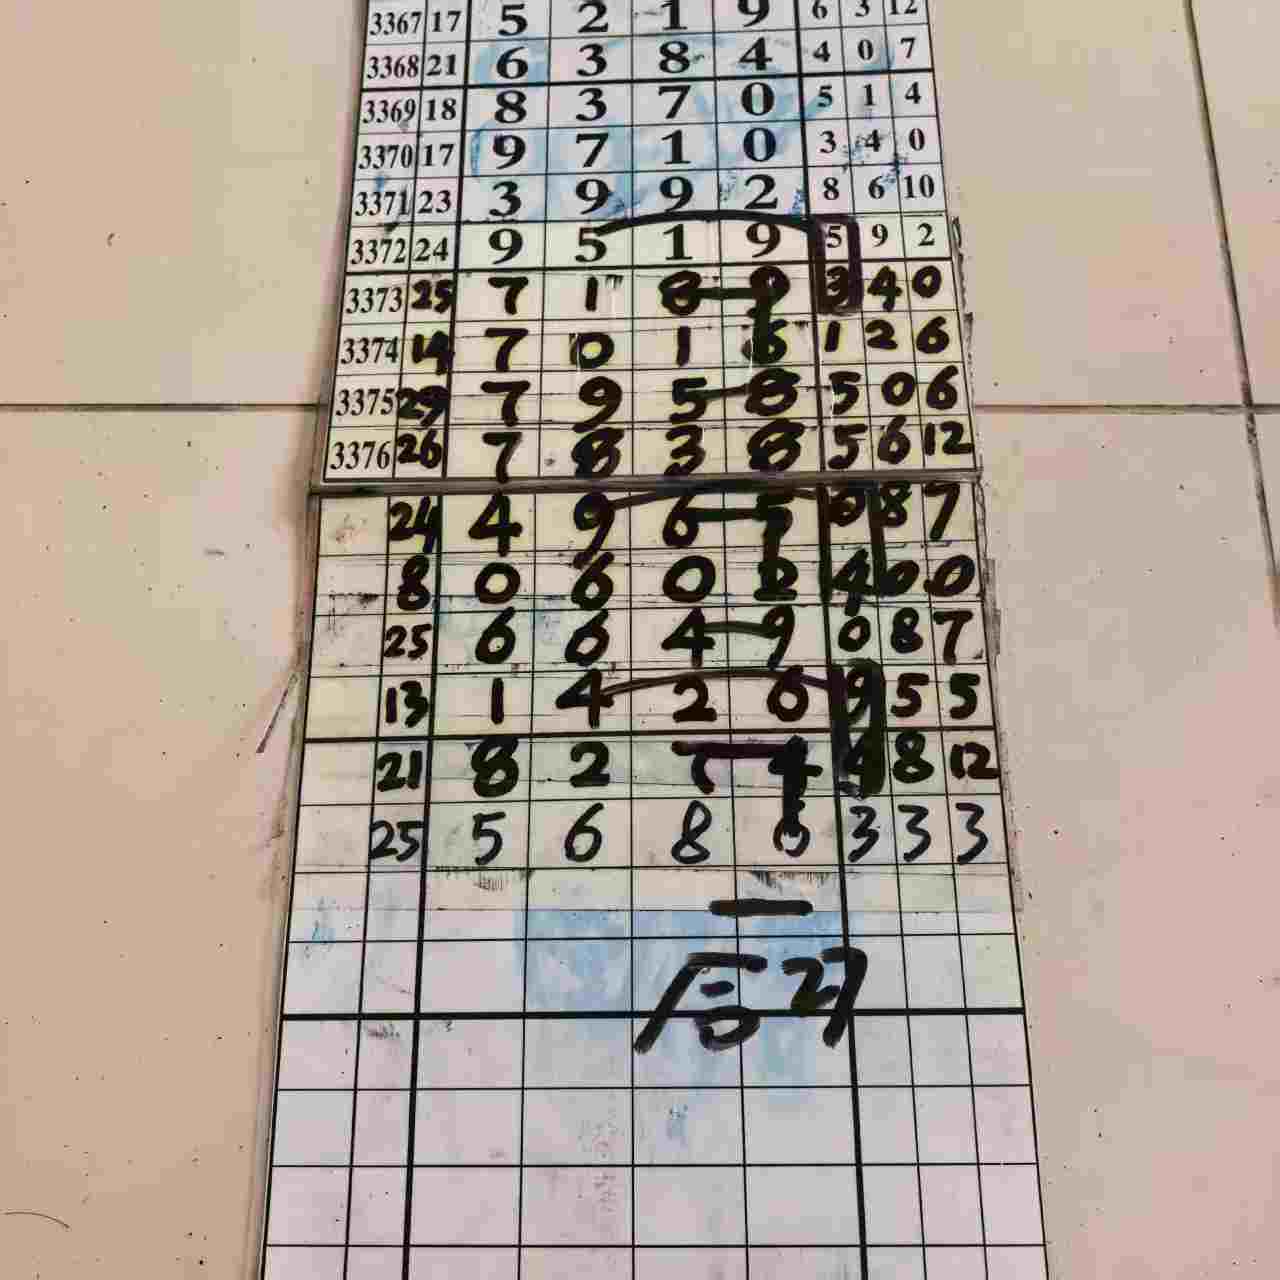 3367 17 5 2 1 9 6 3 12
3368 21 6 3 8 4 4 0 7
3369 18 8 3 7 0 5 1 4
3370 17 9 7 1 0 3 4 0
3371 23 3 9 9 2 8 6 10
3372 24 9 5 1 9 5 9 2
3373 25 7 1 8 9 3 4 0
3374 14 7 0 1 6 1 2 6
3375 29 7 9 5 8 5 0 6
3376 26 7 8 3 8 5 6 12
24 4 9 6 5 0 8 7
8 0 6 0 2 4 0 0
25 6 6 4 9 0 8 7
13 1 4 2 6 9 5 5
21 8 2 7 4 4 8 12
25 5 6 8 6 3 3 3
27